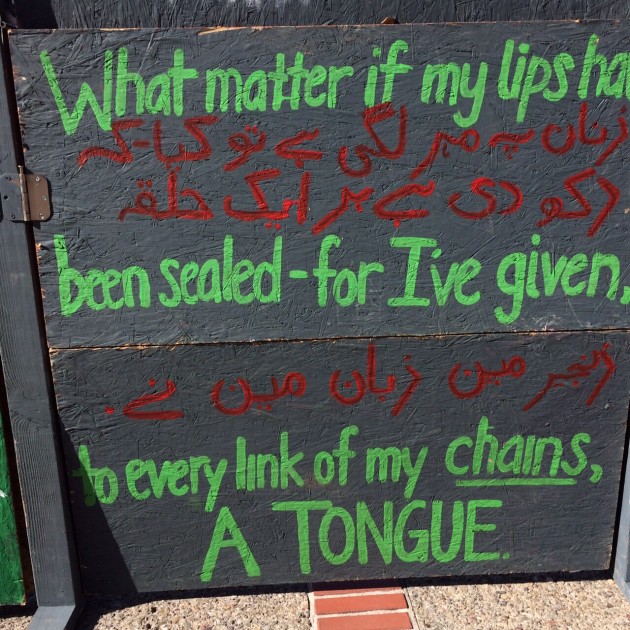 What matter if my lips ha
زبان پہ مہر لگی ہے تو کیا-کہ
رکھ دی ہے ہر ایک حلقہ
been sealed-for I've given,
زنجیر مین زبان مین نے.
to every link of my chains,
A TONGUE.